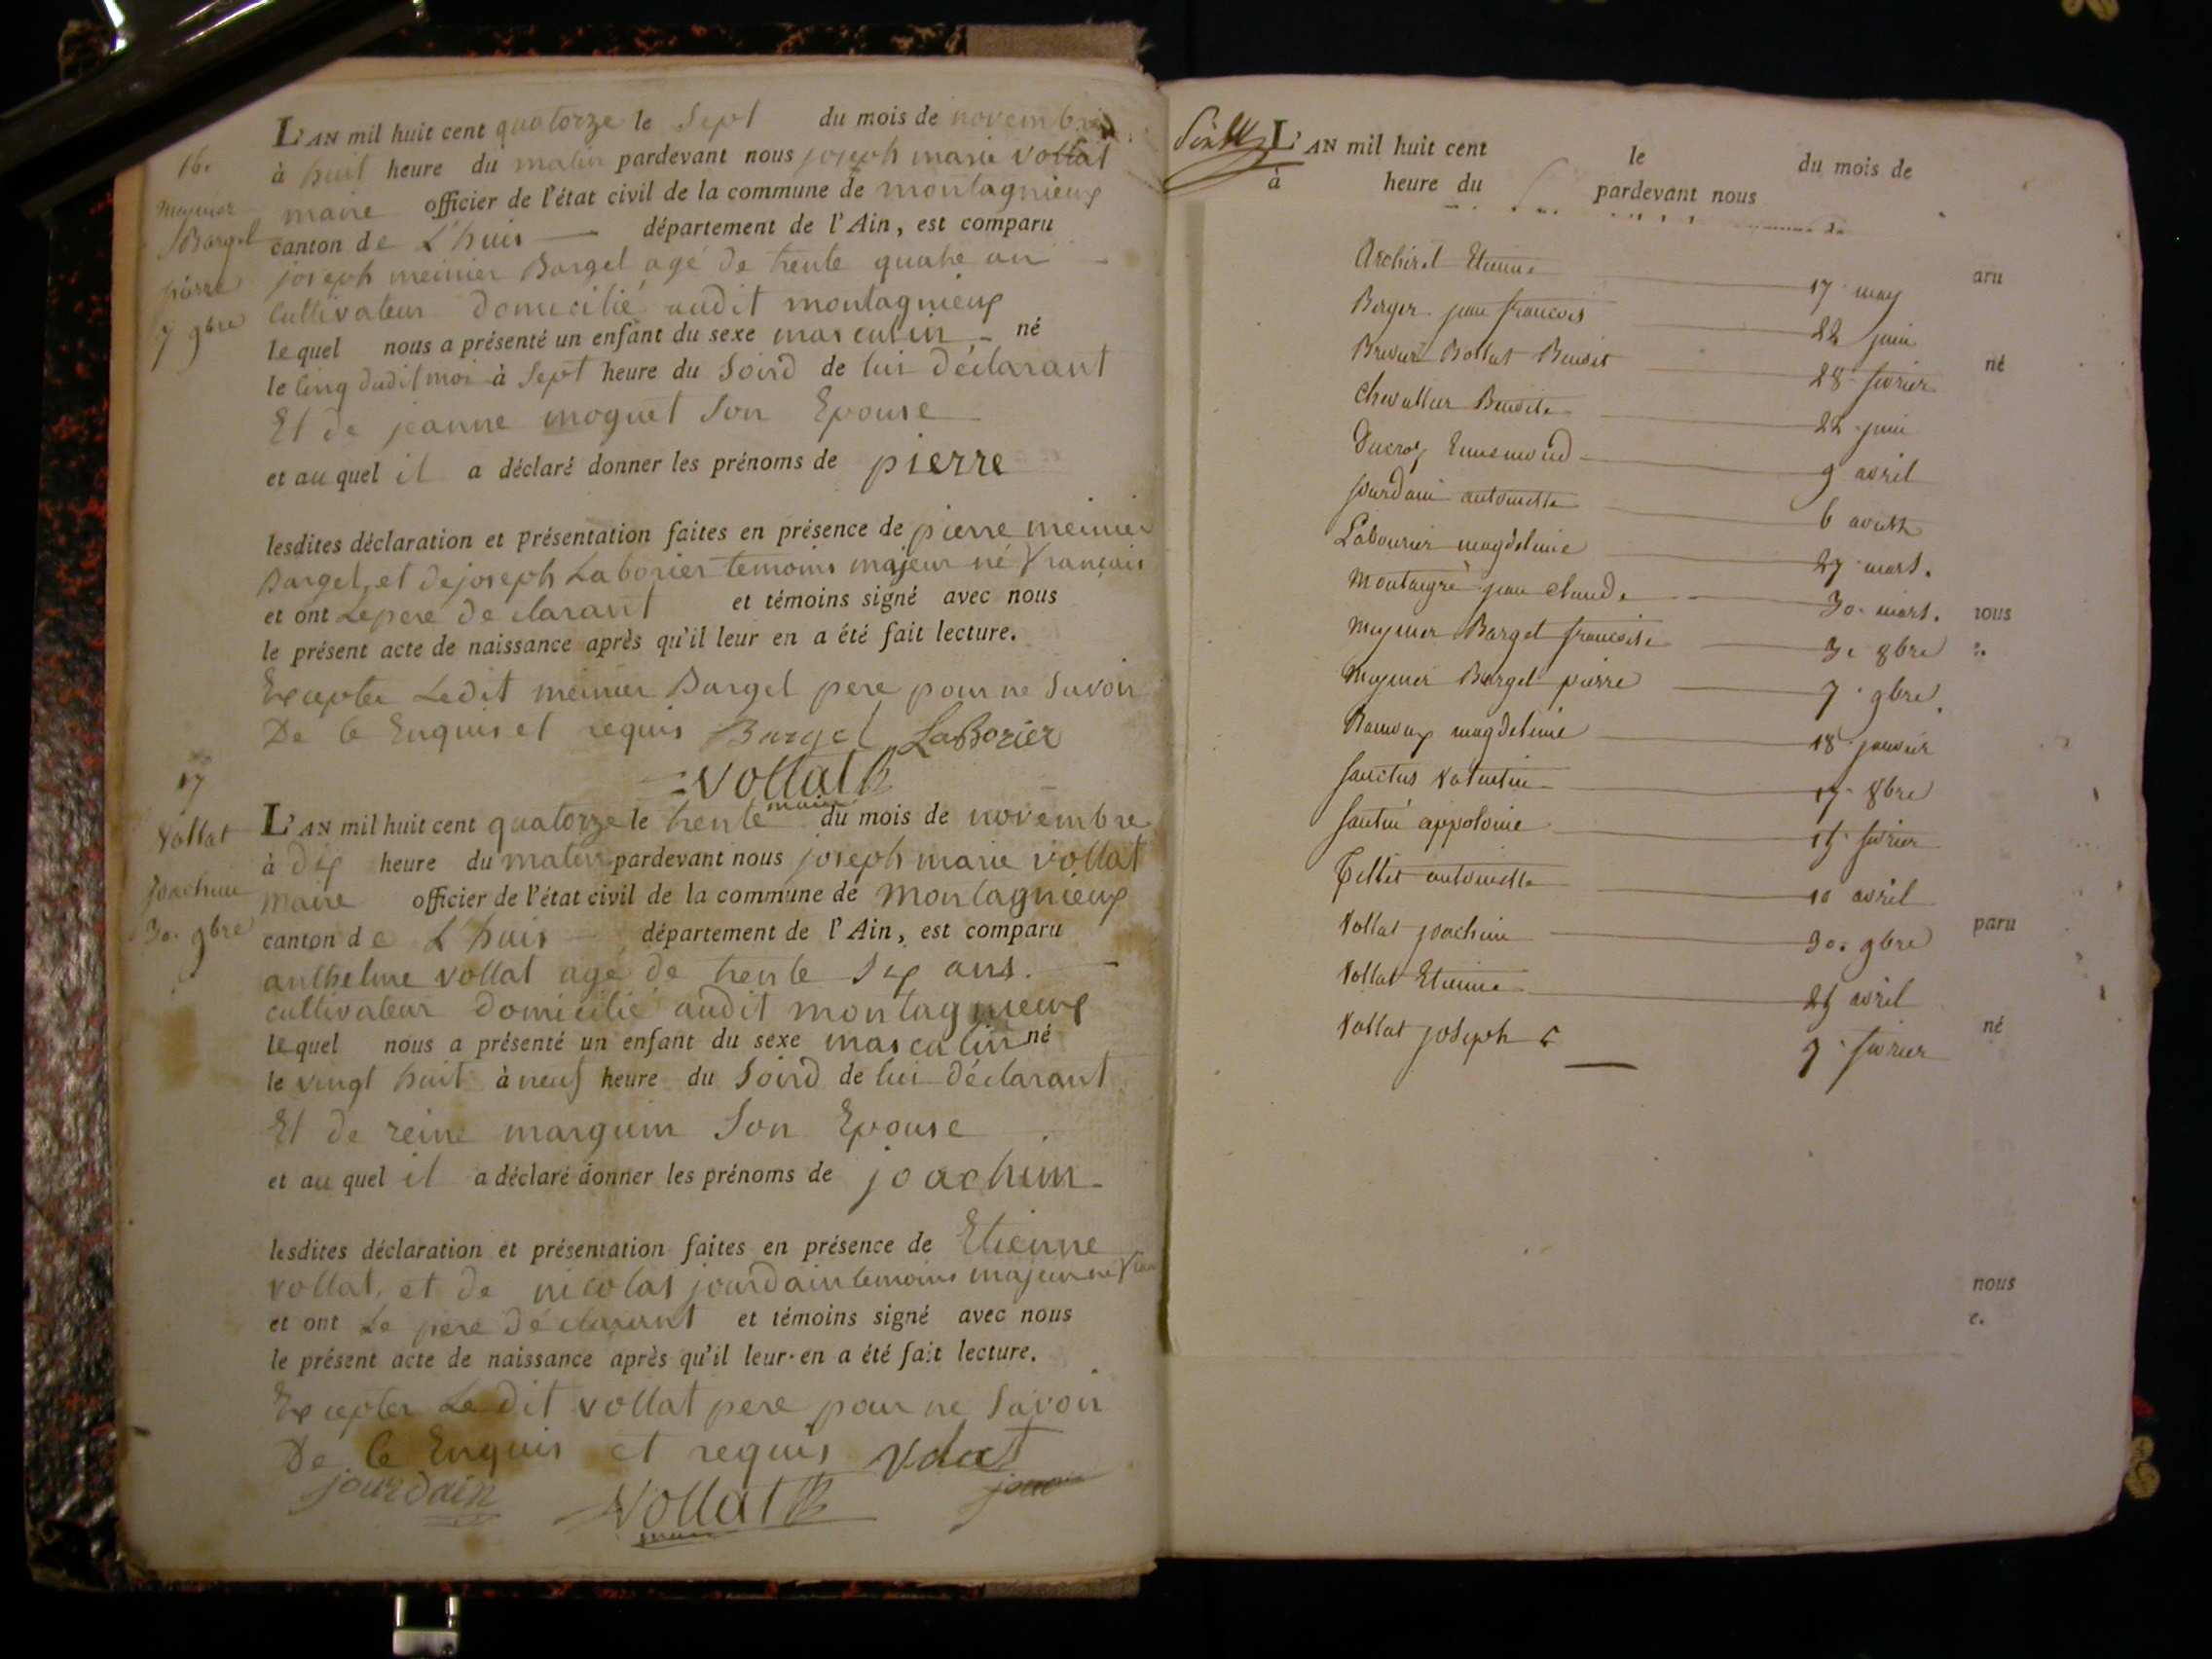 16.
meynier
Bargel
pierre
7 9bre
L'AN mil huit cent quatorze le Sept du mois de novembre
à huit heure du matin pardevant nous joseph marie vollat
maire officier de l'état civil de la commune de montagnieux
canton de L'huis département de l'Ain, est comparu
joseph meinier Bargel agé de trente quatre an
cultivateur domicilié audit montagnieux
lequel nous a présenté un enfant du sexe masculin né
le cinq dudit moi à Sept heure du Soird de lui déclarant
Et de jeanne moguet Son Epouse
et au quel il a déclaré donner les prénoms de pierre
lesdites déclaration et présentation faites en présence de pierre meinier
Bargel, et de joseph Laborier temoins majeur né français
et ont Le pere declarant et témoins signé avec nous
le présent acte de naissance après qu'il leur en a été fait lecture.
Excepter Ledit meinier Bargel pere pour ne Savoir
De Ce Enquis et requis Bargel LaBorier
Vollat
maire
17
Vollat
joachim
30. 9bre
L'AN mil huit cent quatorze le trente du mois de novembre
à dix heure du matin pardevant nous joseph marie vollat
maire officier de l'état civil de la commune de montagnieux
canton de L'huis département de l'Ain, est comparu
anthelme vollat agé de trente Six ans.
cultivateur domicilié audit montagnieux
lequel nous a présenté un enfant du sexe masculin né
le vingt huit à neuf heure du Soird de lui déclarant
Et de reine marguin Son Epouse
et au quel il a déclaré donner les prénoms de joachim
lesdites déclaration et présentation faites en présence de Etienne
vollat, et de nicolas jourdain temoins majeur né
et ont Le pere déclarant et témoins signé avec nous
le présent acte de naissance après qu'il leur en a été fait lecture.
Excepter Le Dit vollat pere pour ne Savoir
De Ce Enquis et requis Volat
jourdain Vollat
maire
L'AN mil huit cent le du mois de
à heure du pardevant nous
Archirel Etienne 17 may
aru
Berger jean francois 22 juin
Bollat Benoit 28 fevrier
né
Chevallier Benoite 22 juin
Ducroz Ennemond 9 avril
jourdain antoinette 6
Labourier magdeleine 27 mars.
Montaigre jean claude 30. mars.
rous
meynier Bargel francoise 3e 8bre
meynier Bargel pierre 7 9bre.
magdeleine 18 janvier
Sanctus Valentin 17 8bre
appolonie 15 fevrier
Tillet antoinette 10 avril
Vollat joachim 30. 9bre
paru
Vollat Etienne 25 avril
Vollat joseph 7 fevrier
né
nous
e.